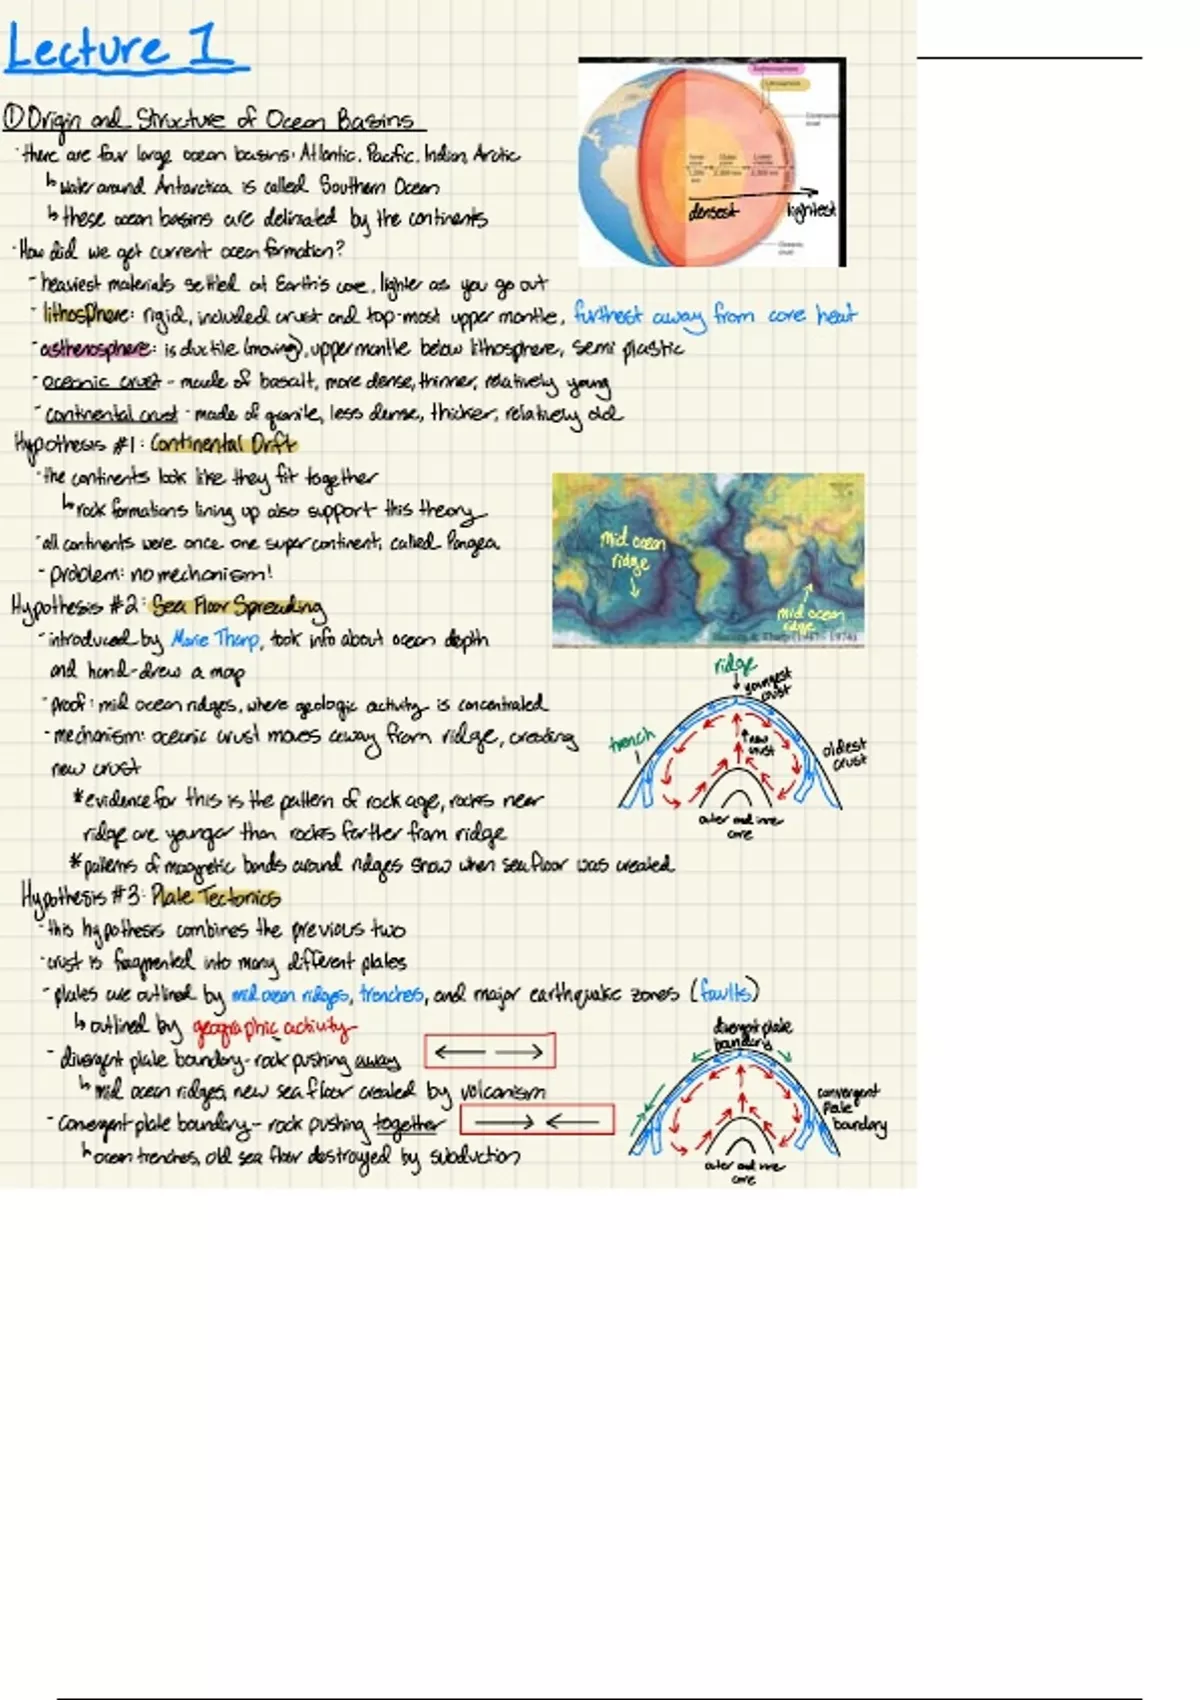 Lecture 1
① Origin and Structure of Ocean Basins
· there are four large ocean basins: Atlantic, Pacific, Indian, Arctic
↳ water around Antarctica is called Southern Ocean
↳ these ocean basins are deliniated by the continents
· How did we get current ocean formation?
- heaviest materials settled at Earth's core, lighter as you go out
- lithosphere: rigid, included crust and top-most upper mantle, furthest away from core heat
- asthenosphere: is ductile (moving), upper mantle below lithosphere, semi plastic
- oceanic crust - made of basalt, more dense, thinner, relatively young
- continental crust - made of granite, less dense, thicker, relatively old
densest
lightest
Hypothesis #1: Continental Drift
· the continents look like they fit together
↳ rock formations lining up also support this theory
· all continents were once one super continent, called Pangea
- problem: no mechanism!
mid ocean
ridge
mid ocean
ridge
Hypothesis #2: Sea Floor Spreading
- introduced by Marie Tharp, took info about ocean depth
and hand-drew a map
- proof: mid ocean ridges, where geologic activity is concentrated
- mechanism: oceanic crust moves away from ridge, creating
new crust
* evidence for this is the pattern of rock age, rocks near
ridge are younger than rocks farther from ridge
* patterns of magnetic bands around ridges show when sea floor was created
ridge
youngest
crust
trench
new
crust
oldest
crust
outer and inner
core
Hypothesis #3: Plate Tectonics
- this hypothesis combines the previous two
· crust is fragmented into many different plates
- plates are outlined by mid ocean ridges, trenches, and major earthquake zones (faults)
↳ outlined by geographic activity
- divergent plate boundary - rock pushing away
↳ mid ocean ridges, new sea floor created by volcanism
- convergent plate boundary - rock pushing together
↳ ocean trenches, old sea floor destroyed by subduction
divergent plate
boundary
convergent
plate
boundary
outer and inner
core